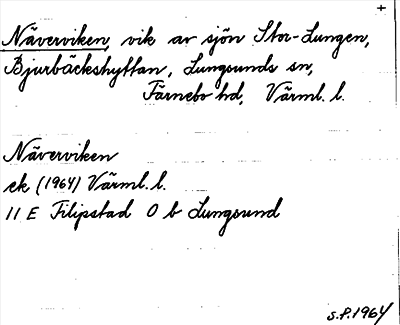 +
Näverviken, vik av sjön Stor-Lungen,
Bjurbäckshyttan, Lungsunds sn,
Färnebo hd, Värml. l.
Näverviken
ek (1964) Värml. l.
11 E Filipstad 0 b Lungsund
S.P. 1964